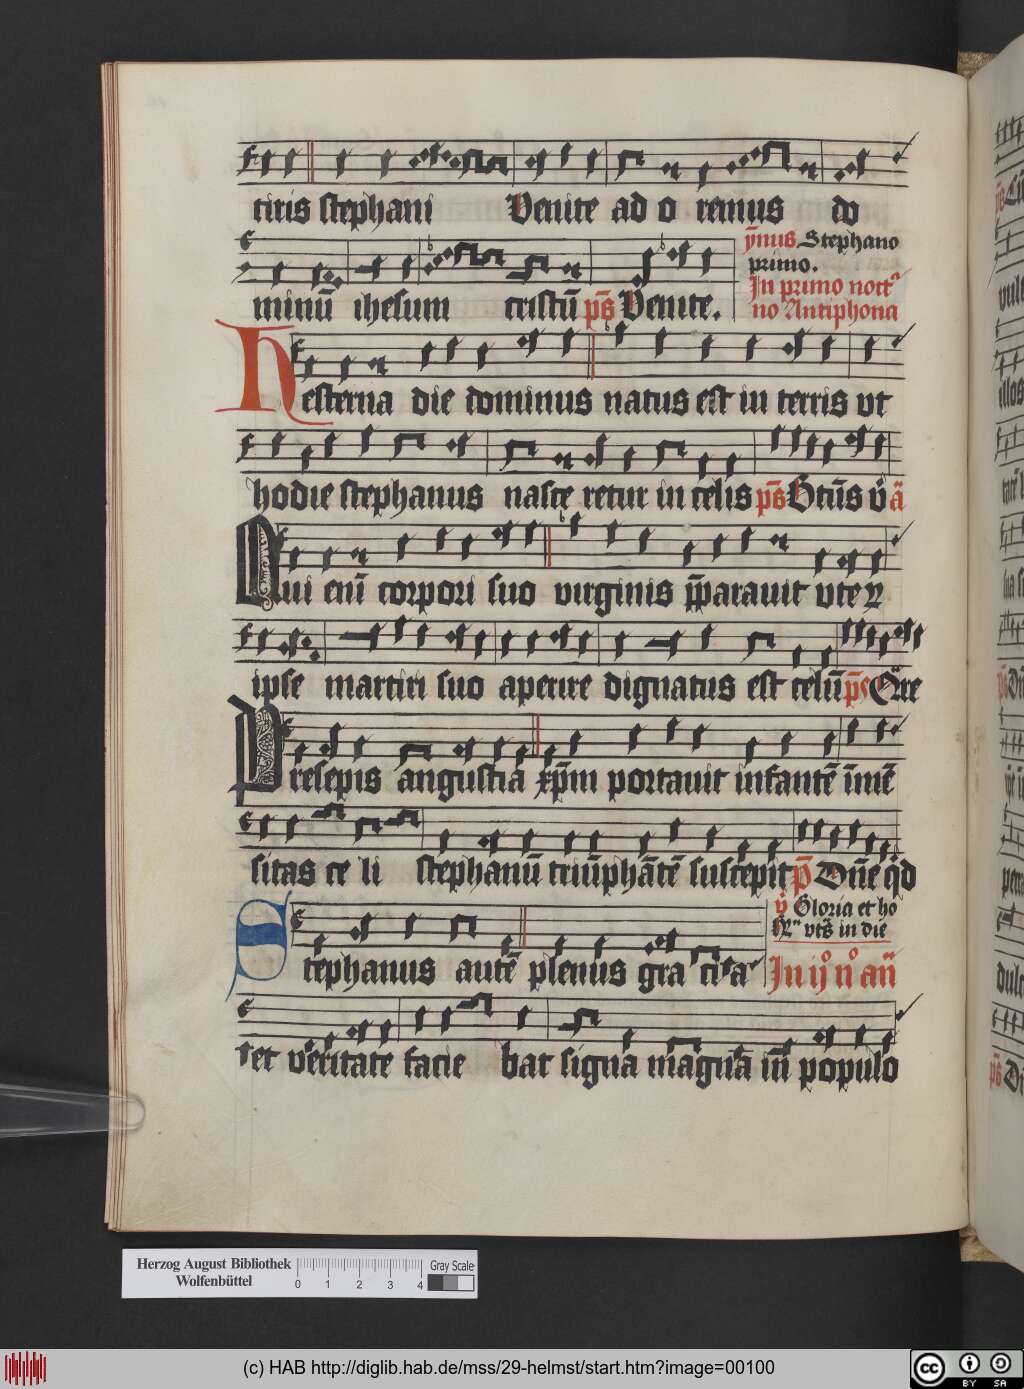 tiris stephani Venite ad o remus do
minū ihesum cristū ps̄ Venite.
ȳnus Stephano
primo.
In primo noct
no Antiphona
Hesterna die dominus natus est in terris vt
hodie stephanus nasce retur in celis ps̄
Qui enī corpori suo virginis p̄parauit vte
ipse martiri suo aperire dignatus est celū ps̄
Presepis angustia xp̄m portauit infantē īmē
sitas ce li stephanū triūphātē suscepit p̄ Dn̄e qd
Stephanus autē plenus gra ci a
Gloria et ho
vts in die
In ij n an̄
et veritate facie bat signa magna in̄ populo
Herzog August Bibliothek
Wolfenbüttel
0 1 2 3 4
Gray Scale
(c) HAB http://diglib.hab.de/mss/29-helmst/start.htm?image=00100
cc BY SA